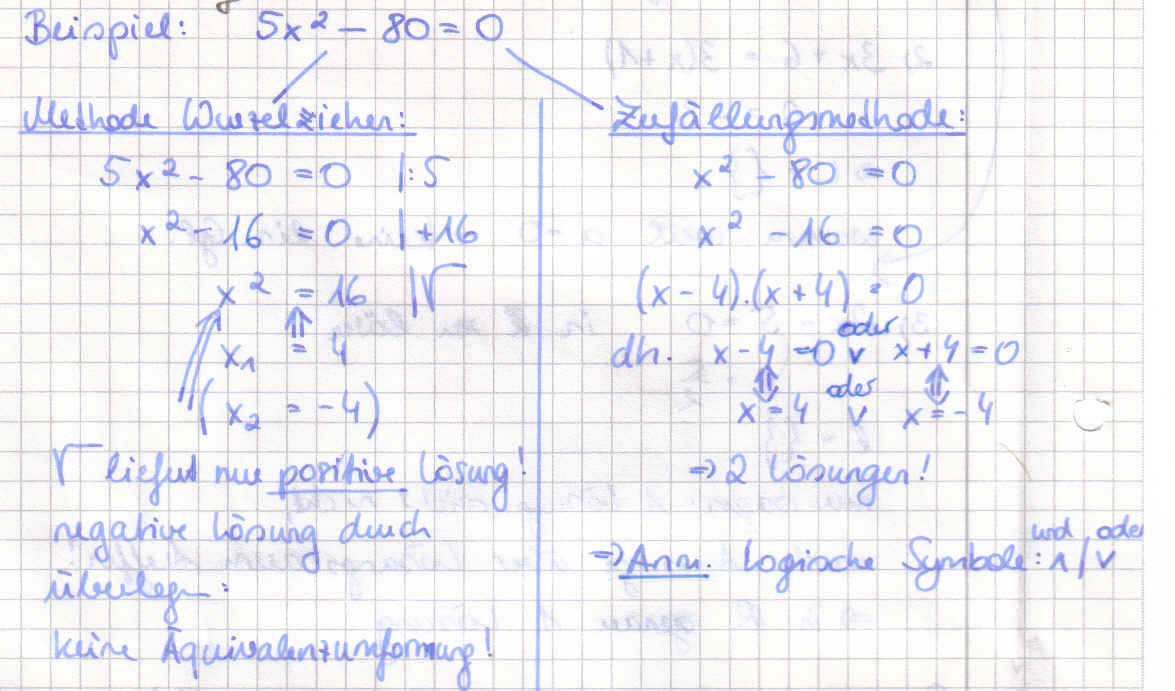 Beispiel: 5x² - 80 = 0
Methode Wurzelziehen:
5x² - 80 = 0 |:5
x² - 16 = 0 |+16
x² = 16 |√
x₁ = 4
(x₂ = -4)
√ liefert nur positive Lösung!
negative Lösung durch
überlegen:
keine Äquivalenzumformung!
Zufällungsmethode:
x² - 80 = 0
x² - 16 = 0
(x - 4).(x + 4) = 0
oder
dh. x - 4 = 0 v x + 4 = 0
oder
x = 4 v x = -4
⇒ 2 Lösungen!
und oder
⇒ Anm. Logische Symbole: ∧/v